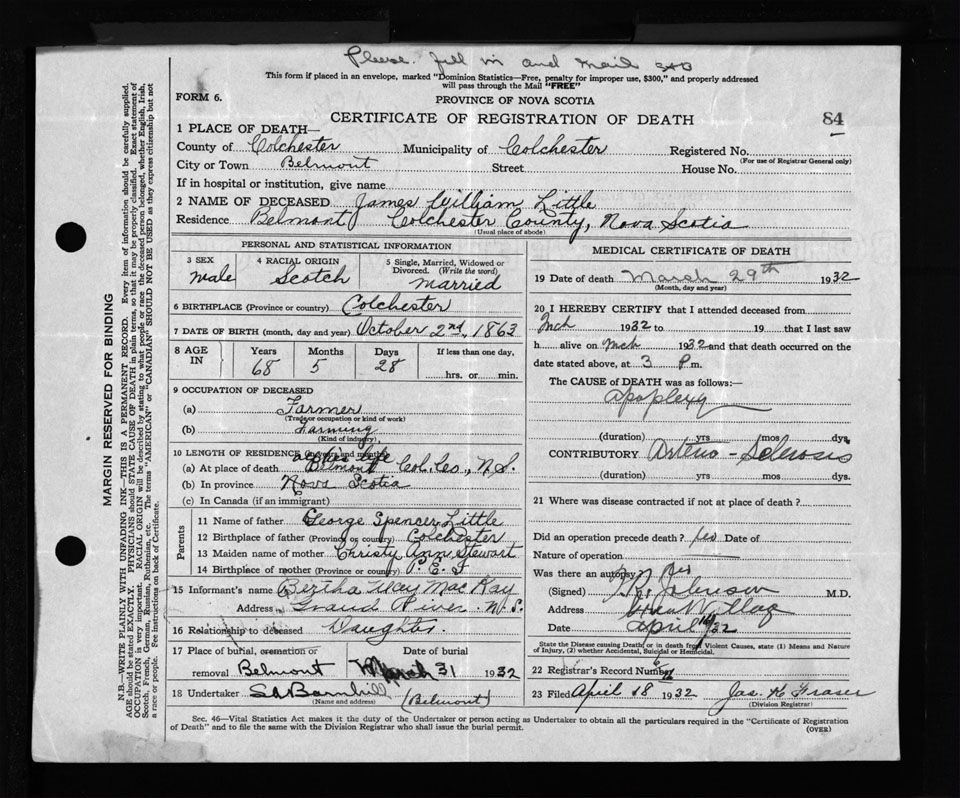 Please fill in and mail
This form if placed in an envelope, marked "Dominion Statistics—Free, penalty for improper use, $300," and properly addressed
will pass through the Mail "FREE"
FORM 6.
PROVINCE OF NOVA SCOTIA
CERTIFICATE OF REGISTRATION OF DEATH
84
1 PLACE OF DEATH—
County of Colchester Municipality of Colchester Registered No.
(For use of Registrar General only)
City or Town Belmont Street House No.
If in hospital or institution, give name
2 NAME OF DECEASED James William Little
Residence Belmont Colchester County, Nova Scotia
(Usual place of abode)
PERSONAL AND STATISTICAL INFORMATION
3 SEX male
4 RACIAL ORIGIN Scotch
5 Single, Married, Widowed or Divorced. (Write the word) married
6 BIRTHPLACE (Province or country) Colchester
7 DATE OF BIRTH (month, day and year) October 2nd, 1863
8 AGE IN Years 68 Months 5 Days 28 If less than one day, hrs. or min.
9 OCCUPATION OF DECEASED
(a) Farmer
(Trade or occupation or kind of work)
(b) Farming
(Kind of industry)
10 LENGTH OF RESIDENCE (in years and months)
(a) At place of death Belmont Col. Co., N.S.
(b) In province Nova Scotia
(c) In Canada (if an immigrant)
Parents
11 Name of father George Spencer Little
12 Birthplace of father (Province or country) Colchester
13 Maiden name of mother Christy Ann Stewart
14 Birthplace of mother (Province or country) P.E.I
15 Informant's name Bertha May MacKay
Address Grand River N.S.
16 Relationship to deceased Daughter.
17 Place of burial, cremation or removal Belmont Date of burial March 31 1932
18 Undertaker SA Barnhill (Belmont)
(Name and address)
MEDICAL CERTIFICATE OF DEATH
19 Date of death March 29th 1932
(Month, day and year)
20 I HEREBY CERTIFY that I attended deceased from
Mch 1932 to 19 that I last saw
h alive on Mch 1932 and that death occurred on the
date stated above, at 3 P.m.
The CAUSE of DEATH was as follows:
apoplexy
(duration) yrs mos dys.
CONTRIBUTORY Arterio-Sclerosis
(duration) yrs mos dys.
21 Where was disease contracted if not at place of death?
Did an operation precede death? Date of
Nature of operation
Was there an autopsy?
(Signed) Johnson M.D.
Address
Date April 32
State the Disease causing Death, or in death from Violent Causes, state (1) Means and Nature
of Injury, (2) whether Accidental, Suicidal or Homicidal.
22 Registrar's Record Number
23 Filed April 18 1932 Jas. H. Fraser
(Division Registrar)
Sec. 46—Vital Statistics Act makes it the duty of the Undertaker or person acting as Undertaker to obtain all the particulars required in the "Certificate of Registration
of Death" and to file the same with the Division Registrar who shall issue the burial permit.
(OVER)
MARGIN RESERVED FOR BINDING
N.B.—WRITE PLAINLY WITH UNFADING INK—THIS IS A PERMANENT RECORD. Every item of information should be carefully supplied.
AGE should be stated EXACTLY. PHYSICIANS should STATE CAUSE OF DEATH in plain terms, so that it may be properly classified. Exact statement of
OCCUPATION is very important. RACIAL ORIGIN will be described by stating to what people or race the deceased person belonged, whether English, Irish,
Scotch, French, German, Russian, Ruthenian, etc. The terms "AMERICAN" or "CANADIAN" SHOULD NOT BE USED as they express citizenship but not
a race or people. See instructions on back of Certificate.